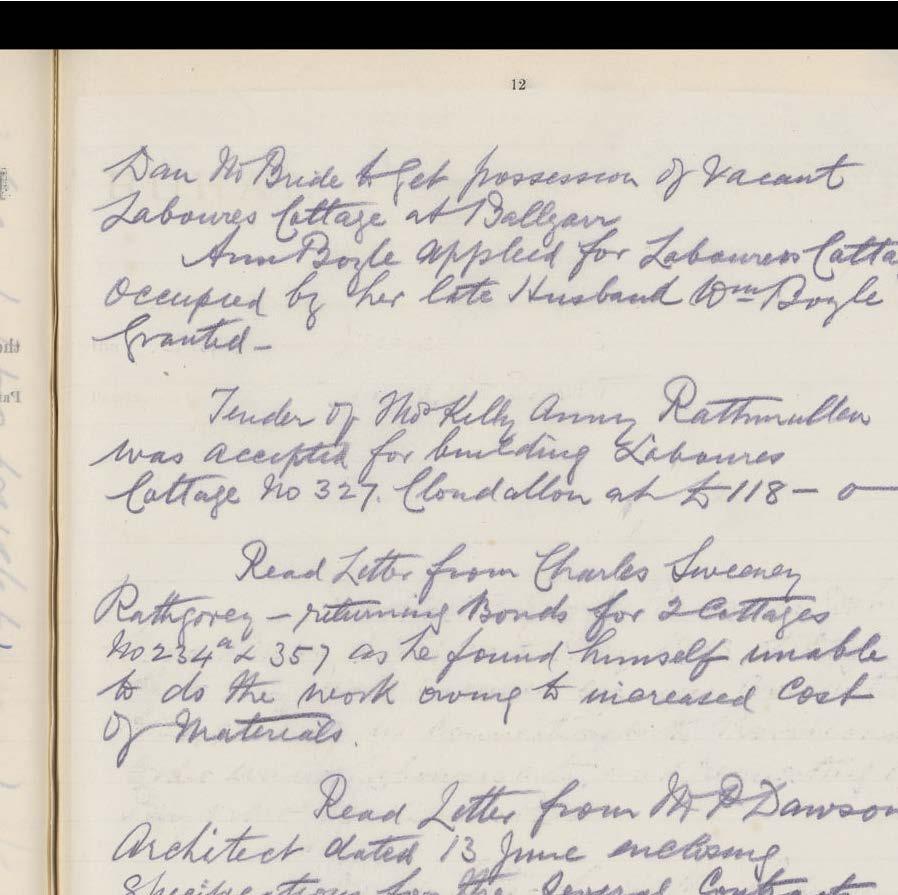 12
Dan McBride to get possession of Vacant
Laboures Cottage at Ballyarr
Ann Boyle applied for Laboures Cotta
Occupied by her late Husband Wm Boyle
Granted -
Tender of Thos Kelly Rathmullen
was accepted for building Laboures
Cottage No 327. at £118 - 0 -
Read Letter from Charles Sweeney
- returning Bonds for 2 Cottages
No 234a & 357 as he found himself unable
to do the work owing to increased Cost
Of Materials.
Read Letter from Dawson
Architect dated 13 June enclosing
Specifications for the several Contract